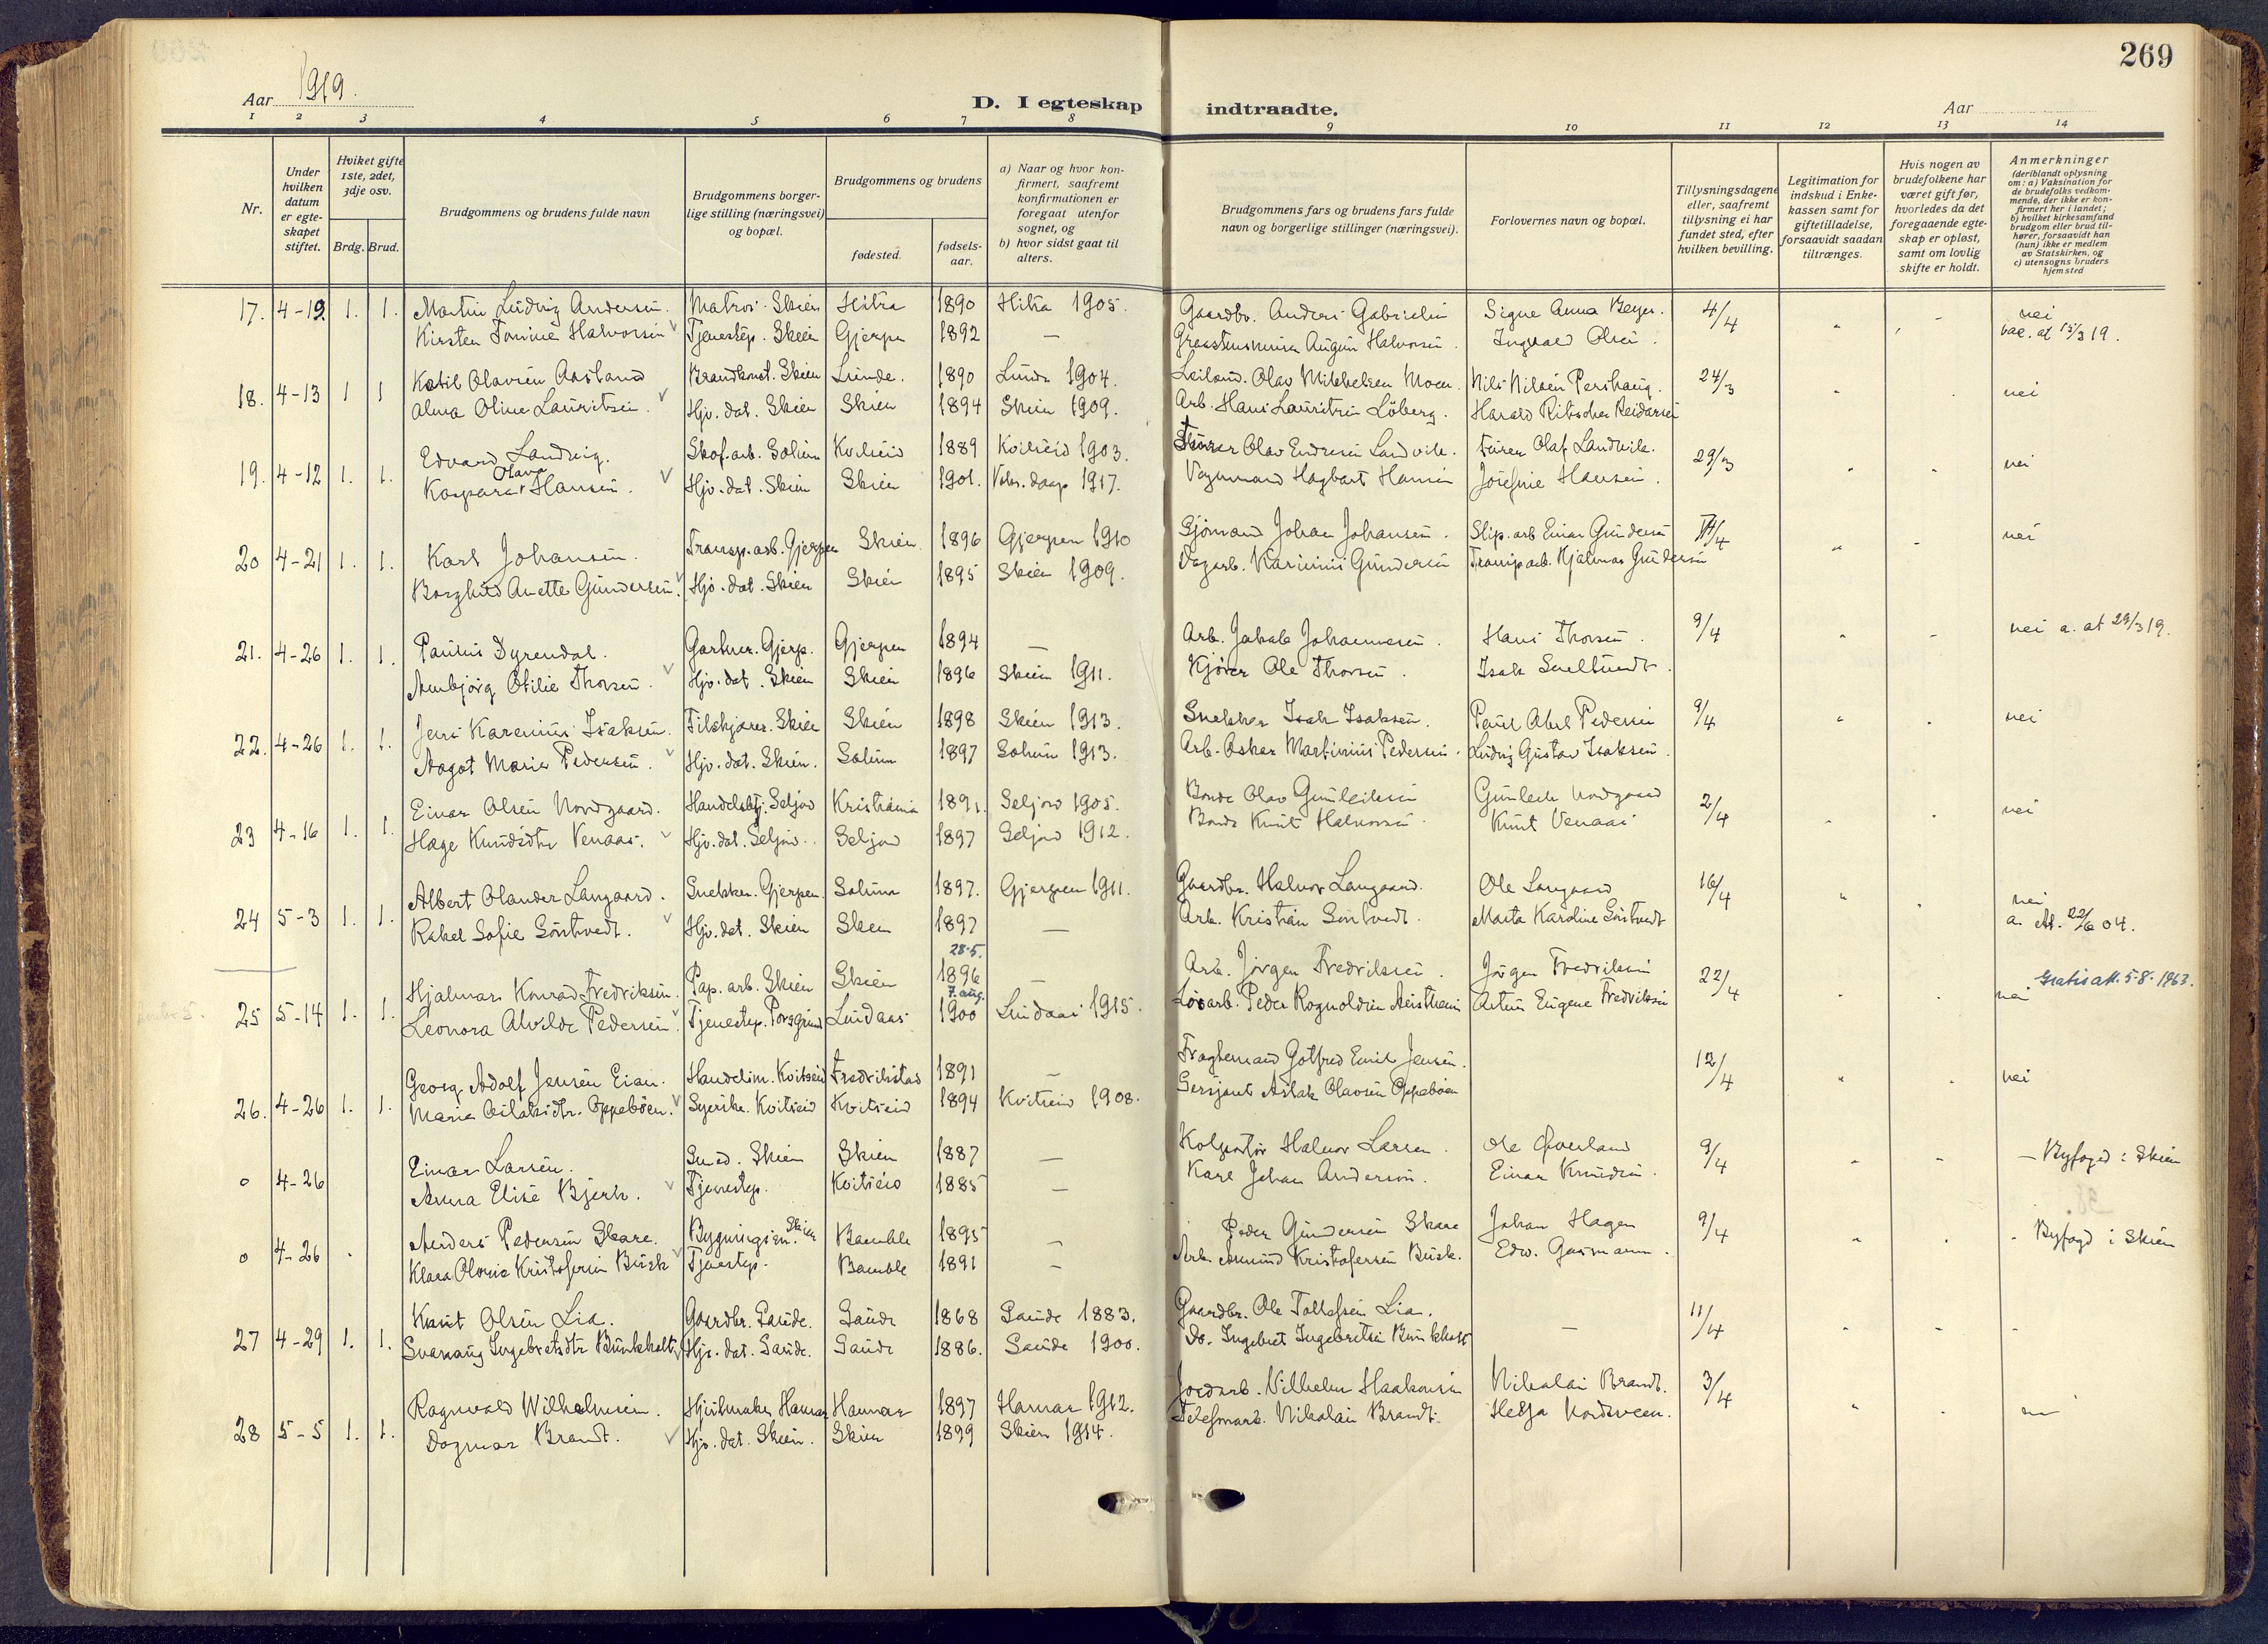 269
Aar 1919.
D. I egteskap indtraadte.
Aar
1 2 3 4 5 6 7 8 9 10 11 12 13 14
Nr.
Under hvilken datum er egteskapet stiftet.
Hviket gifte 1ste, 2det, 3dje osv.
Brdg. Brud.
Brudgommens og brudens fulde navn
Brudgommens borgerlige stilling (næringsvei) og bopæl.
Brudgommens og brudens
fødested.
fødselsaar.
a) Naar og hvor konfirmert, saafremt konfirmationen er foregaat utenfor sognet, og
b) hvor sidst gaat til alters.
Brudgommens fars og brudens fars fulde navn og borgerlige stillinger (næringsvei).
Forlovernes navn og bopæl.
Tillysningsdagene eller, saafremt tillysning ei har fundet sted, efter hvilken bevilling.
Legitimation for indskud i Enkekassen samt for giftetilladelse, forsaavidt saadan tiltrænges.
Hvis nogen av brudefolkene har været gift før, hvorledes da det foregaaende egteskap er opløst, samt om lovlig skifte er holdt.
Anmerkninger (deriblandt oplysning om: a) Vaksination for de brudefolks vedkommende, der ikke er konfirmert her i landet; b) hvilket kirkesamfund brudgom eller brud tilhører, forsaavidt han (hun) ikke er medlem av Statskirken, og c) utensogns bruders hjemsted
17. 4-19. 1. 1. Martin Ludvig Andersen. Matros. Skien Hitra 1890 Hitra 1905. Gaardbr. Anders Gabrielsen Signe Anna Beyer. 4/4 nei
Kirsten Tomine Halvorsen Tjenestep. Skien Gjerpen 1892 — August Halvorsen. Ingvald Olsen. vac. at 15/3 19.
18. 4-13 1 1 Ketil Olavsen Aasland Skien Lunde. 1890 Lunde 1904. Leiland. Olav Mikkelsen Moen. Nils Nilsen Pershaug. 24/3 nei
Alma Oline Lauritsen. Hjv. dat. Skien Skien 1894 Skien 1909. Arb. Hans Lauritsen Löberg. Harald Reidarsen
19. 4-12 1. 1. Edvard Landvig. Skof. arb. Solum Kviteseid 1889 Kviteseid 1903. Olav Endresen Landvik. Olaf Landvik. 29/3 nei
Kaspara Olava Hansen. Hjv. dat. Skien Skien 1901. 1917. Vognmand Hagbart Hansen Josefine Hansen.
20 4-21 1. 1. Karl Johansen. Transp. arb. Gjerpen Skien 1896 Gjerpen 1910 Sjömand Johan Johansen. Slip. arb Einar Gundersen nei
Borghild Anette Gundersen. Hjv. dat. Skien Skien 1895 Skien 1909. Karinius Gundersen Transp. arb. Hjalmar Gundersen
21. 4-26 1. 1. Paulus Dyrendal. Gartner. Gjerp. Gjerpen 1894 — Arb. Jakob Johannesen. Hans Thorsen. 9/4 nei a. at 29/3 19.
Annbjörg Otilie Thorsen. Hjv. dat. Skien Skien 1896 Skien 1911. Kjörer Ole Thorsen. Isak
22. 4-26 1. 1. Jens Karenius Isaksen. Skien Skien 1898 Skien 1913. Snekker Isak Isaksen. Paul Abel Pedersen 9/4 nei
Aagot Marie Pedersen. Hjv. dat. Skien. Solum 1897 Solum 1913. Arb. Oskar Martinius Pedersen. Ludvig Gustav Isaksen.
23 4-16 1. 1. Einar Olsen Nordgaard. Seljord Kristiania 1891. Seljord 1905. Bonde Olav Gunleiksen Gunleik Nordgaard 2/4 nei
Hæge Knudsdtr Venaas. Hjv. dat. Seljord. Seljord 1897 Seljord 1912. Bonde Knut Halvorsen. Knut Venaas
24 5-3 1. 1. Albert Olander Langaard. Snekker. Gjerpen. Solum 1897. Gjerpen 1911. Gaardbr. Halvor Langaard. Ole Langaard 16/4 nei
Rakel Sofie Söntvedt. Hjv. dat. Skien Skien 1897 — Arb. Kristian Söntvedt. Marta Karoline Söntvedt a. At. 22/6 04.
25 5-14 1. 1. Hjalmar Konrad Fredriksen. Pap. arb. Skien Skien 28-5. 1896 — Arb. Jörgen Fredriksen. Jörgen Fredriksen 22/4 nei Gratisatt. 5-8-1963.
Leonora Alvilde Pedersen Tjenestep. Porsgrund Lindaas 7. aug. 1900 Lindaas 1915. Peder Rognoldsen Artur Eugene Fredriksen
26. 4-26 1. 1. Georg Adolf Jensen Eian. Kviteseid Fredrikstad 1891 — Fragtemand Gotfred Emil Jensen. 12/4 nei
Maria Aslaksdtr. Oppebøen. Syerske. Kviteseid Kviteseid 1894 Kviteseid 1908. Sersjant Aslak Olavsen Oppebøen
0 4-26 Einar Larsen. Smed. Skien Skien 1887 — Kolportör Halvor Larsen. Ole Øverland 9/4 — Byfoged i Skien
Anna Elise Bjerk. Tjenestep. Kviteseid 1885 — Karl Johan Anderson. Einar Knudsen.
0 4-26 Anders Pedersen Skare. Skien Bamble 1895 — Peder Gundersen Skare Johan Hagen 9/4 Byfogd i Skien
Klara Olovia Kristofersen Busk Tjenestep. Bamble 1891 — Arb. Amund Kristofersen Busk. Edv. Gasmann.
27 4-29 1. 1. Knut Olsen Lia. Gaardbr. Saude. Saude 1868 Saude 1883. Gaardbr. Ole Tollefsen Lia. — 11/4
Svanaug Ingebretsdtr Bunkholt Hjv. dat. Saude. Saude 1886. Saude 1900. Do. Ingebret Ingebretsen Bunkholt
28 5-5 1. 1. Ragnvald Wilhelmsen. Hjulmaker Hamar Hamar 1897 Hamar 1912. Jordarb. Vilhelm Haakonsen Nikolai Brandt. 3/4
Dagmar Brandt. Hjv. dat. Skien. Skien 1899 Skien 1914. Nikolai Brandt. Helga Nordsveen.